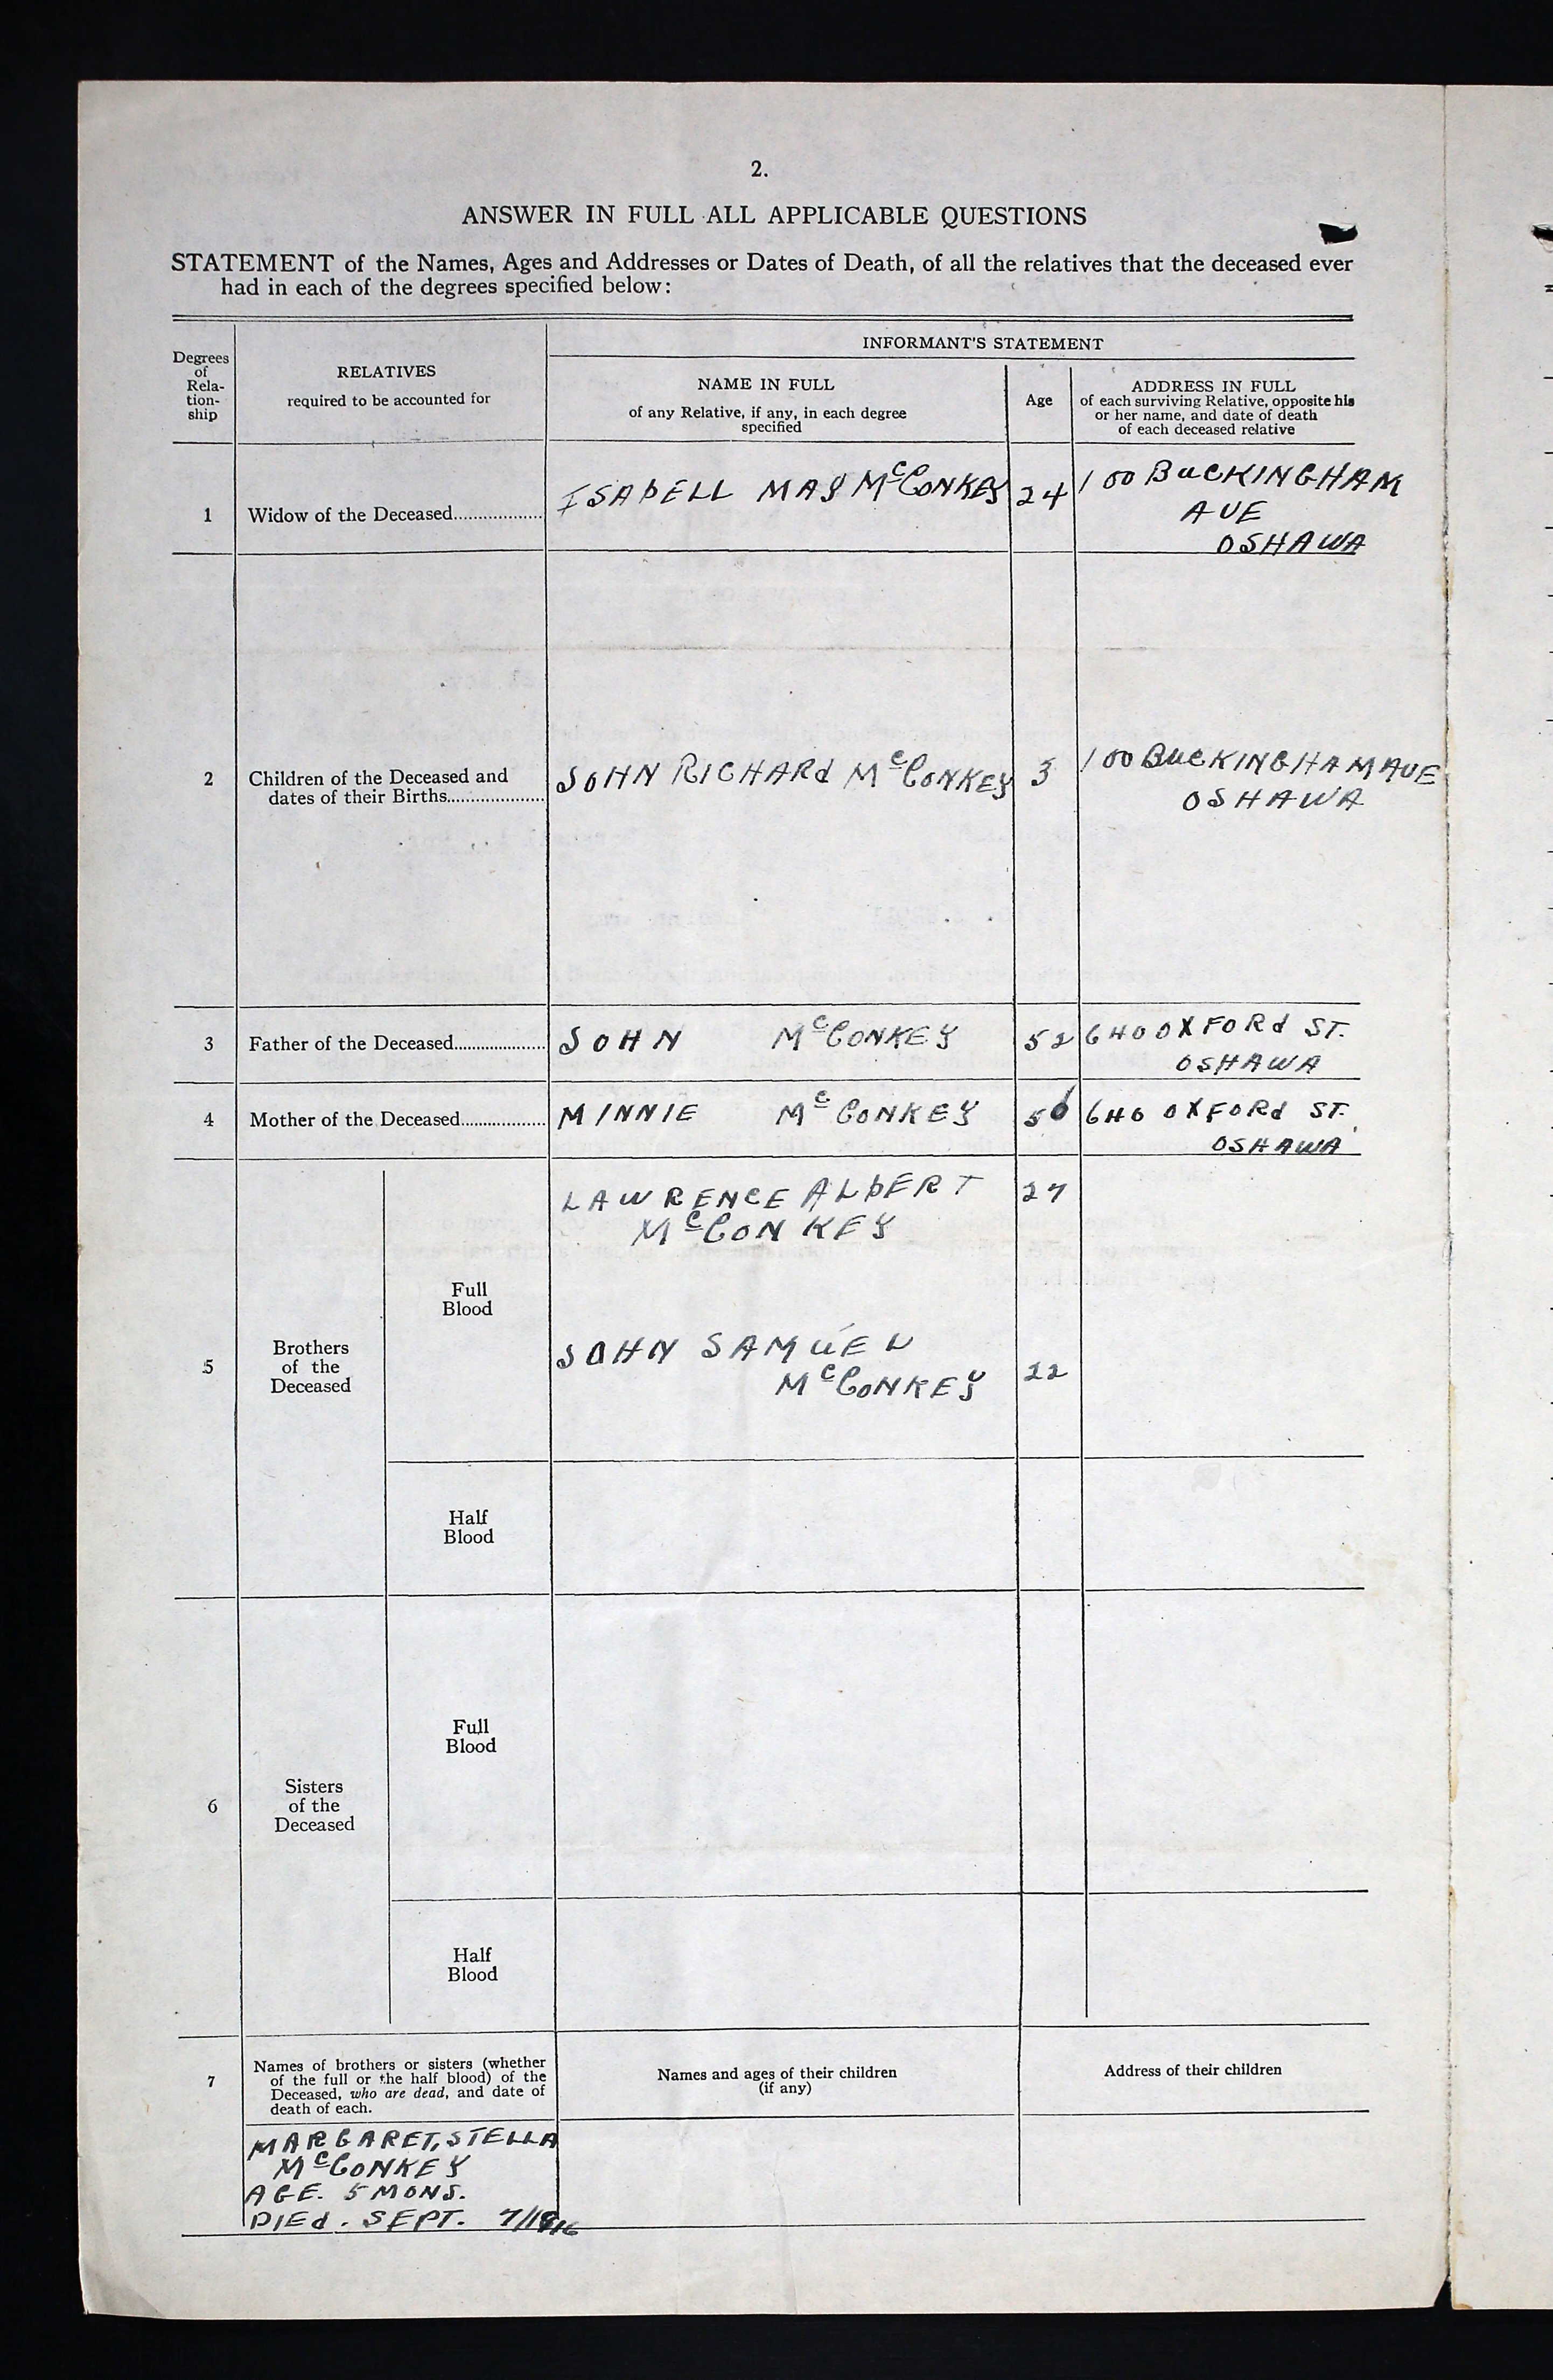 2.
ANSWER IN FULL ALL APPLICABLE QUESTIONS
STATEMENT of the Names, Ages and Addresses or Dates of Death, of all the relatives that the deceased ever
had in each of the degrees specified below:
Degrees
of
Rela-
tion-
ship
RELATIVES
required to be accounted for
INFORMANT'S STATEMENT
NAME IN FULL
of any Relative, if any, in each degree
specified
Age
ADDRESS IN FULL
of each surviving Relative, opposite his
or her name, and date of death
of each deceased relative
1 Widow of the Deceased
ISABELL MAY McCONKEY 24 100 BUCKINGHAM
AVE
OSHAWA
2 Children of the Deceased and
dates of their Births
JOHN RICHARd McCONKEY 3 100 BUCKINGHAM AVE
OSHAWA
3 Father of the Deceased JOHN McCONKEY 52 640 OXFORd ST.
OSHAWA
4 Mother of the Deceased MINNIE McCONKEY 640 OXFORd ST.
OSHAWA
5 Brothers
of the
Deceased
Full
Blood
LAWRENCE ALBERT 27
McCONKEY
JOHN SAMUEL
McCONKEY 22
Half
Blood
6 Sisters
of the
Deceased
Full
Blood
Half
Blood
7 Names of brothers or sisters (whether
of the full or the half blood) of the
Deceased, who are dead, and date of
death of each.
Names and ages of their children
(if any)
Address of their children
MARGARET, STELLA
McCONKEY
AGE. 5 MONS.
DIEd. SEPT.